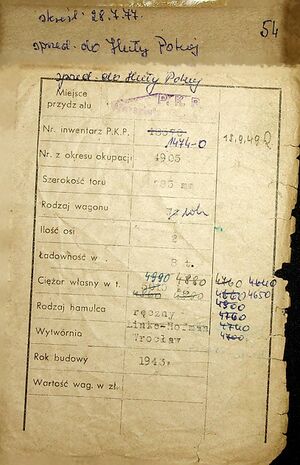 skreśl. 28.7.77.
54
sprzed. do Huty Pokój
sprzed. do Huty Pokój
Miejsce
przydziału P.K.P.
Nr. inwentarz P.K.P. 1474-0 18.9.49
Nr. z okresu okupacji 4905
Szerokość toru 785 mm
Rodzaj wagonu
Ilość osi 2
Ładowność w t. 8 t.
Ciężar własny w t. 4990 4880 4760 4640
4660 4650
4800
Rodzaj hamulca ręczny 4760
Wytwórnia Linke-Hofman 4740
Wrocław 4700
Rok budowy 1943.
Wartość wag. w zł.